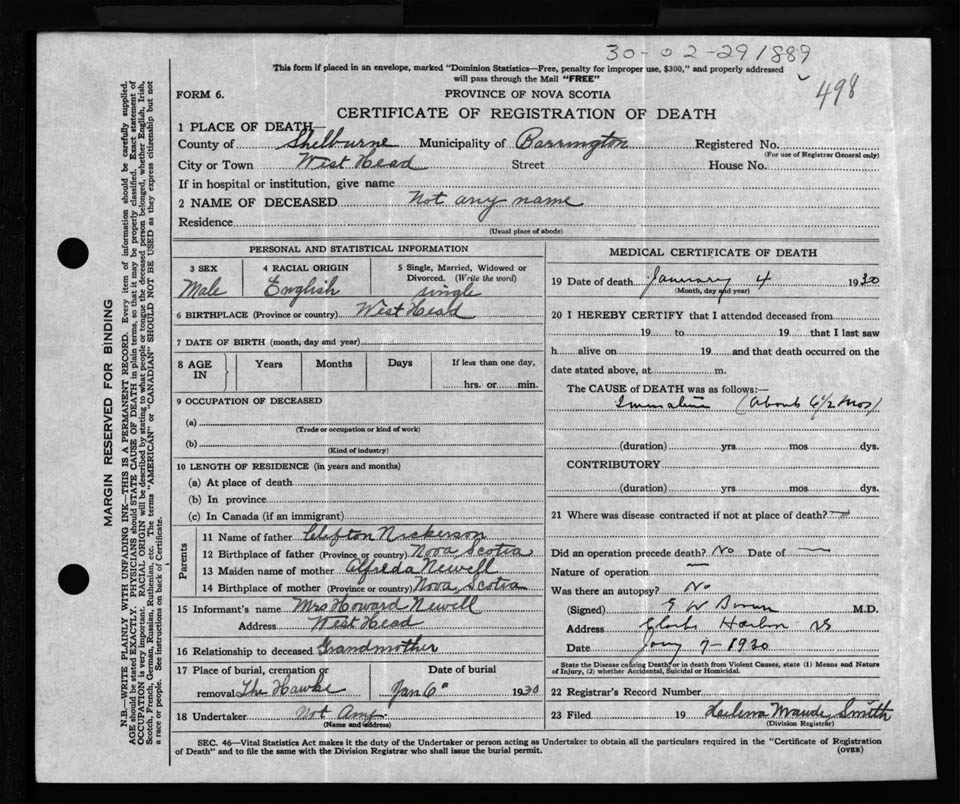 30-02-291889
498
This form if placed in an envelope, marked "Dominion Statistics—Free, penalty for improper use, $300," and properly addressed
will pass through the Mail "FREE"
FORM 6.
PROVINCE OF NOVA SCOTIA
CERTIFICATE OF REGISTRATION OF DEATH
1 PLACE OF DEATH—
County of Shelburne Municipality of Barrington Registered No.
(For use of Registrar General only)
City or Town West Head Street House No.
If in hospital or institution, give name
2 NAME OF DECEASED Not any name
Residence
(Usual place of abode)
PERSONAL AND STATISTICAL INFORMATION
3 SEX
Male
4 RACIAL ORIGIN
English
5 Single, Married, Widowed or
Divorced. (Write the word)
single
6 BIRTHPLACE (Province or country) West Head
7 DATE OF BIRTH (month, day and year)
8 AGE
IN
Years
Months
Days
If less than one day,
hrs. or min.
9 OCCUPATION OF DECEASED
(a)
(Trade or occupation or kind of work)
(b)
(Kind of industry)
10 LENGTH OF RESIDENCE (in years and months)
(a) At place of death
(b) In province
(c) In Canada (if an immigrant)
Parents
11 Name of father Clifton Nickerson
12 Birthplace of father (Province or country) Nova Scotia
13 Maiden name of mother Alfreda Newell
14 Birthplace of mother (Province or country) Nova Scotia
15 Informant's name Mrs Howard Newell
Address West Head
16 Relationship to deceased Grandmother
17 Place of burial, cremation or
removal The Hawke
Date of burial
Jan 6" 1930
18 Undertaker Not Any
(Name and address)
MEDICAL CERTIFICATE OF DEATH
19 Date of death January 4 1930
(Month, day and year)
20 I HEREBY CERTIFY that I attended deceased from
19 to 19 that I last saw
h alive on 19 and that death occurred on the
date stated above, at m.
The CAUSE of DEATH was as follows:—
(About 6 1/2 mos)
(duration) yrs. mos dys.
CONTRIBUTORY
(duration) yrs. mos. dys.
21 Where was disease contracted if not at place of death?
Did an operation precede death? No Date of —
Nature of operation —
Was there an autopsy? No
(Signed) M.D.
Address Clarks Harbor NS
Date Jany 7-1930
State the Disease causing Death, or in death from Violent Causes, state (1) Means and Nature
of Injury, (2) whether Accidental, Suicidal or Homicidal.
22 Registrar's Record Number
23 Filed 19 Maude Smith
(Division Registrar)
SEC. 46—Vital Statistics Act makes it the duty of the Undertaker or person acting as Undertaker to obtain all the particulars required in the "Certificate of Registration
of Death" and to file the same with the Division Registrar who shall issue the burial permit.
(OVER)
MARGIN RESERVED FOR BINDING
N.B.—WRITE PLAINLY WITH UNFADING INK—THIS IS A PERMANENT RECORD. Every item of information should be carefully supplied.
AGE should be stated EXACTLY. PHYSICIANS should STATE CAUSE OF DEATH in plain terms, so that it may be properly classified. Exact statement of
OCCUPATION is very important. RACIAL ORIGIN will be described by stating to what people or tongue the deceased person belonged, whether English, Irish,
Scotch, French, German, Russian, Ruthenian, etc. The terms "AMERICAN" or "CANADIAN" SHOULD NOT BE USED as they express citizenship but not
a race or people. See instructions on back of Certificate.